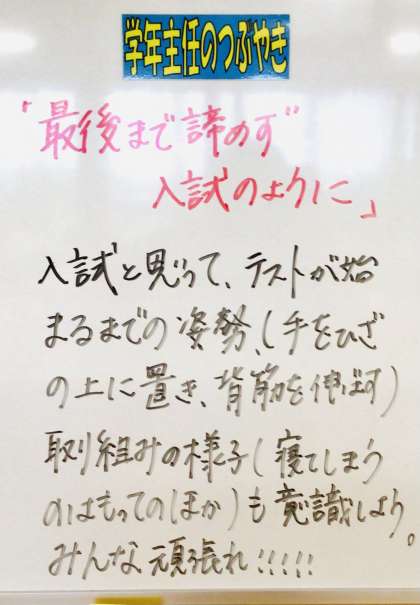 学年主任のつぶやき
「"最後まで諦めず"
入試のように」
入試と思って、テストが始
まるまでの姿勢、(手をひざ
の上に置き、背筋を伸ばす)
取り組みの様子(寝てしまう
のはもってのほか)も意識しよう。
みんな頑張れ!!!!!